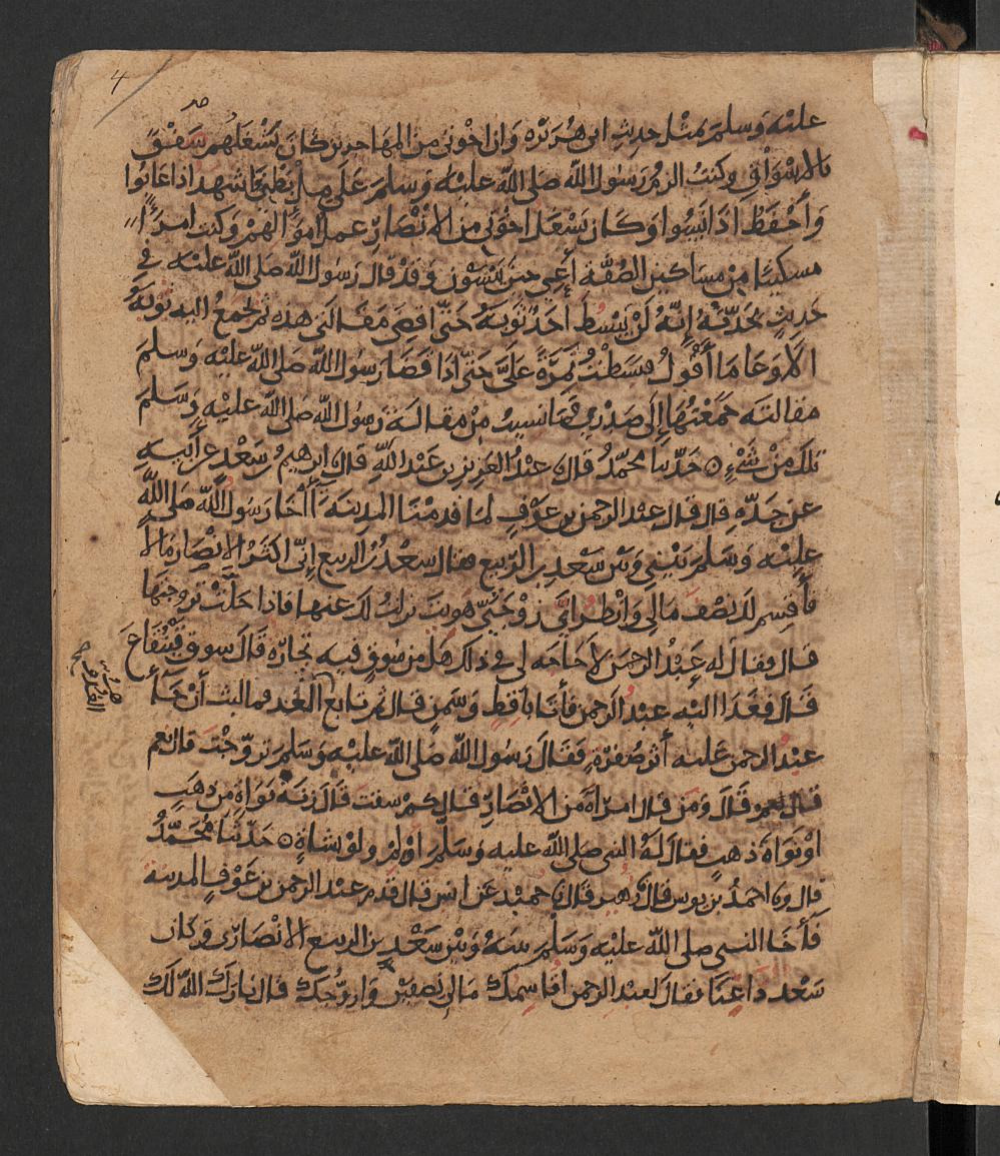 4
صـ
عليه وسلم بمثل حديث ابي هريرة وان اخوتي من المهاجرين كان يشغلهم سَفْقٌ
بالاسْوَاق وكنت الزمُ رَسُول الله صلى الله عليه وسلم على مِلْءِ بَطني فاشهد اذا غابُوا
وَأحْفَظُ اذا نَسُوا وكان يشغل اخوتي من الانصار عمل اموالهمْ وكنت امرءًا
مسكينًا مِنْ مساكين الصُّفَّة أعي حين يَنْسَوْن وَقَدْ قال رَسُول الله صلى الله عليه في
حَديثٍ يُحَدِّثهُ إِنَّهُ لَنْ يَبْسُطَ أحَدٌ ثَوْبَهُ حَتَّى اقضِيَ مَقَالتي هذه ثم يَجمعُ اليه ثوبَهُ
الا وَعَا مَا أَقُولُ فبَسَطْتُ نَمِرَةً عَليَّ حَتّى اذا قَضَا رَسُول الله صلى الله عليْه وسلم
مقالته جَمَعْتُهَا إلى صَدْرِي فَمَا نسيتُ مِنْ مقالة رَسُول الله صلى الله عليْه وسَلم
تلك مِنْ شَيْءٍ ۝ حَدّثنا محمّدُ قال عبْدُ العزيز بن عَبْد الله قال ابرهيمُ بن سَعْد عن أبيهِ
عن جَدّهِ قال قال عبْد الرحمن بن عَوْفٍ لما قدمْنَا المدينَةَ آخَا رَسُول الله صلى الله
عليْه وَسَلم بَيْني وَبَيْن سَعْد بن الرّبيع فقال سعْدُ بْن الربيع إنّي اكثرُ الانصَار مَالا
فأَقسِم لكَ نصْفَ مَالي وَانْظُر ايّ زَوْجَتَيّ هَوِيتَ نزلتُ لكَ عنهَا فاذا حَلّتْ تزوجتَهَا
قال فقال له عَبْدُ الرحمن لا حَاجَه لي في ذلك هَل من سُوقٍ فيه تجارَه قال سوق قَيْنُقَاعَ
قَال فغَدَا اليْه عبْد الرحمن فأتا بأقطٍ وسَمنٍ قال ثم تابع الغدو فما لبث أن جَاَ
عبْد الرحمن عَليْه أثر صُفرَةٍ فقال رَسُول الله صَلى الله عليْه وَسَلم تزوّجْتَ قال نعم
قال وَمَنْ قال امرَاةً من الانْصَارِ قال كم سقت قال زنَةَ نَوَاةٍ من ذهَبٍ
اوْ نوَاة ذهَبٍ فقال لهُ النبي صلى الله عليه وَسَلّم اوْلِمْ ولوْ بشاةٍ ۝ حَدّثنا مُحمَّدُ
قال ونا احمدُ بن يونس قال نا زهير قال نا حميْد عن انس قال قدم عبْد الرحمن بن عَوْفٍ المدينه
فَآخَا النبي صلى الله عليْه وَسَلم بينَهُ وَبَيْن سَعْد بن الربيع الانْصَارِي وَكان
سَعْد ذا غِنًا فقال لعبْد الرحمن اقاسمكَ مَالي نصْفَيْن وَازوّجك قال بَارَك الله لك